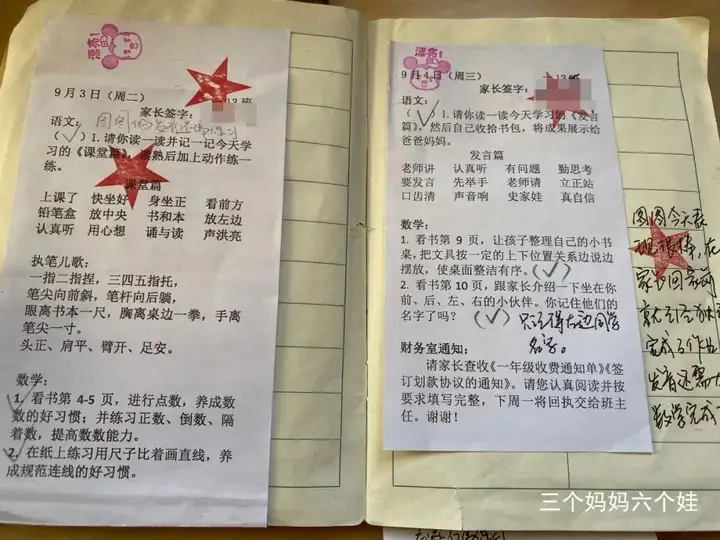 漂亮!
9月3日（周二）
13班
家长签字：
语文：
（√）1. 请你读一读并记一记今天学
习的《课堂篇》，读熟后加上动作练一
练。
课堂篇
上课了 快坐好 身坐正 看前方
铅笔盒 放中央 书和本 放左边
认真听 用心想 诵与读 声洪亮
执笔儿歌：
一指二指捏，三四五指托，
笔尖向前斜，笔杆向后躺，
眼离书本一尺，胸离桌边一拳，手离
笔尖一寸。
头正、肩平、臂开、足安。
数学：
1. 看书第 4-5 页，进行点数，养成数
数的好习惯；并练习正数、倒数、隔
着数，提高数数能力。
2. 在纸上练习用尺子比着画直线，养
成规范连线的好习惯。
漂亮!
9月4日（周三）
一13班
家长签字：
语文：
（√）1. 请你读一读今天学习的《发言
篇》，然后自己收拾书包，将成果展示给
爸爸妈妈。
发言篇
老师讲 认真听 有问题 勤思考
要发言 先举手 老师请 立正站
口齿清 声音响 史家娃 真自信
数学：
1. 看书第 9 页，让孩子整理自己的小书
桌，把文具按一定的上下位置关系边说边
摆放，使桌面整洁有序。（√）
2. 看书第 10 页，跟家长介绍一下坐在你
前、后、左、右的小伙伴。你记住他们的
名字了吗？（√）只记得右边同学
名字。
财务室通知：
请家长查收《一年级收费通知单》《签
订划款协议的通知》。请您认真阅读并按
要求填写完整，下周一将回执交给班主
任。谢谢！
圆圆今天表
现很棒，在
家长回家前
就已经
完成了作业
发言还需
数学完成
三个妈妈六个娃